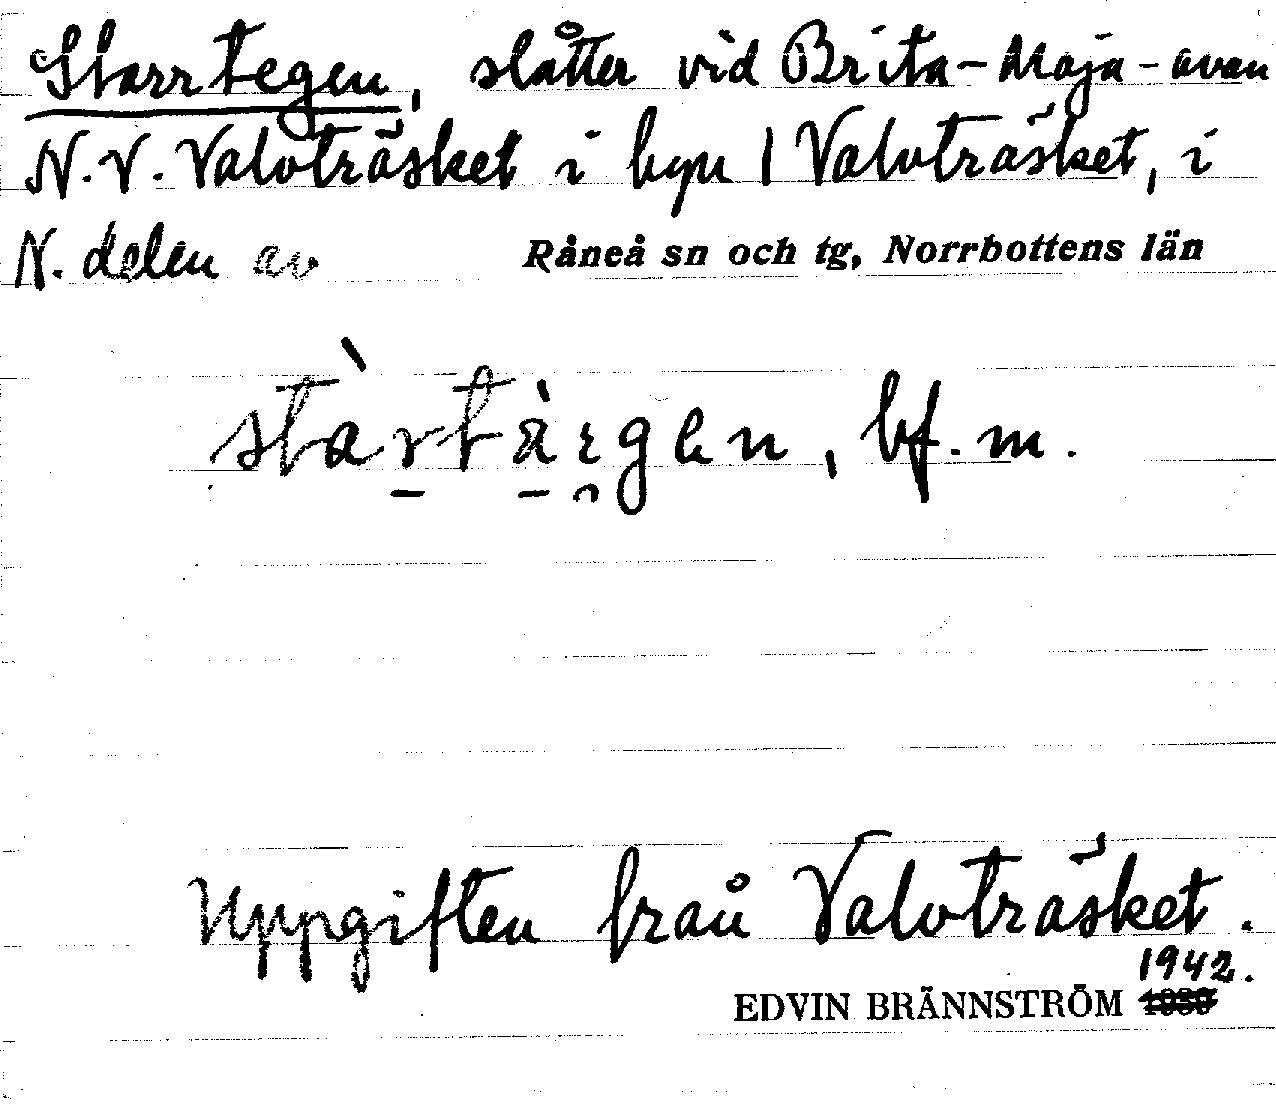 Starrtegen, slåtter vid Brita-Maja-avan
N.V. Valvträsket i byn 1 Valvträsket, i
N. delen av Råneå sn och tg, Norrbottens län
stàrtä̀ɛgen, bf. m.
Uppgiften från Valvträsket.
1942.
EDVIN BRÄNNSTRÖM